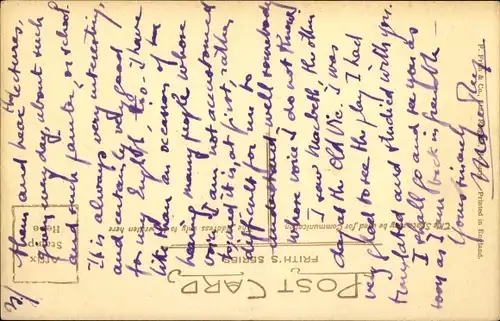 2/
them and hear lectures,
every days about such
and such painter, or school.
It is always very interesting,
and certainly very good
for my English, too. I have
like than an occasion of
hearing many people whose
voice I am not accustomed
to and it is at first, rather
difficult for me to
understand well somebody
whose voice I do not know.
I saw Macbeth the other
day at the Old Vic. I was
very glad to see the play I had
translated and studied with you.
I shall go and see you as
soon as I come back in french
Yours sincerely
POST CARD
FRITH'S SERIES
The Address only to be written here
This Space may be used for Communication
Affix
Stamp
Here
F. Frith & Co., Ltd., Reigate.
Printed in England.